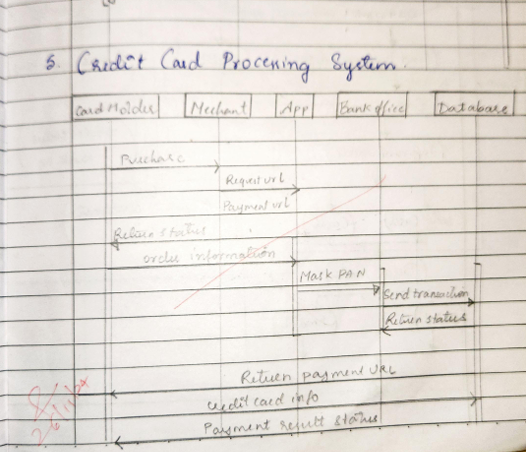 5. Credit Card Processing System.
Card Holder Mechant App Bank office Database
Purchase
Request url
Payment url
Return status
order information
Mask PAN
Send transaction
Return status
Return payment URL
credit card info
Payment result status